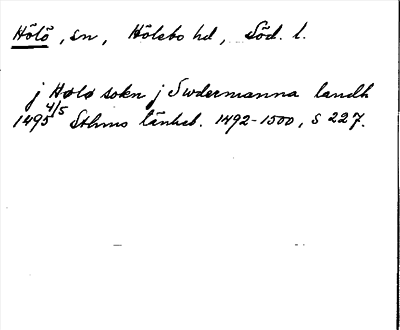 Hölö, sn, Hölebo hd, Söd. l.
j Hølø sokn j Swdermanna landh
1495 4/5 Sthms tänkeb. 1492-1500, s 227.